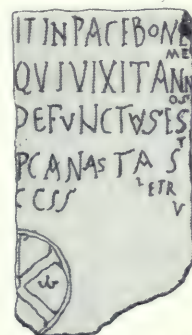 IT IN PACE BON
ME
QVI VIXIT ANN
OS
DEFVNCTVS ES
T
PC ANASTA S
ET R
V
CC SS